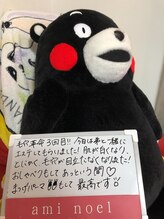 毛穴革命3回目!! 今回は弟と一緒に
エステしてもらいました! 肌が白くなり、
とにかく、毛穴が目立たなくなりました!
おしゃべりもしてあっという間♡
まつげパーマもして最高です♡
ami noel